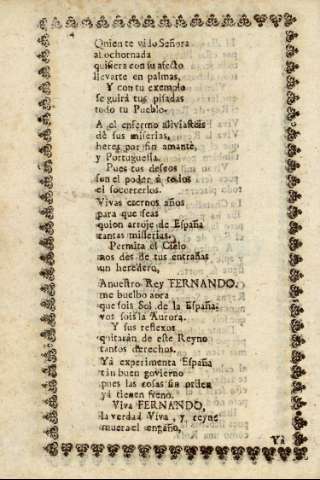 Quien te vido Señora
al ochornada
quisiera con su afecto
llevarte en palmas,
Y con tu exemplo
seguirá tus pisadas
todo tu Pueblo.
A el enfermo aliviasteis
de sus miserias,
heres por fin amante,
y Portuguesa.
Pues tus deseos
son el poder á todos
el socorrerlos.
Vivas eternos años
para que seas
quien arroje de España
tantas miserias.
Permita el Cielo
nos dés de tus entrañas
un heredero,
A nuestro Rey FERNANDO.
me buelbo aora
que sois Sol de la España
vos sois la Aurora.
Y sus reflexos
quitarán de este Reyno
tantos derechos.
Yá experimenta España
tan buen govierno
pues las cosas sin orden
yá tienen freno.
Viva FERNANDO,
la verdad Viva, y reyne
muera el engaño,
Yá